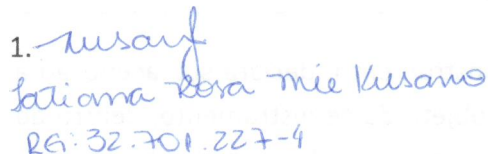 1.
Tatiana Rosa Mie Kusano
RG: 32.701.227-4